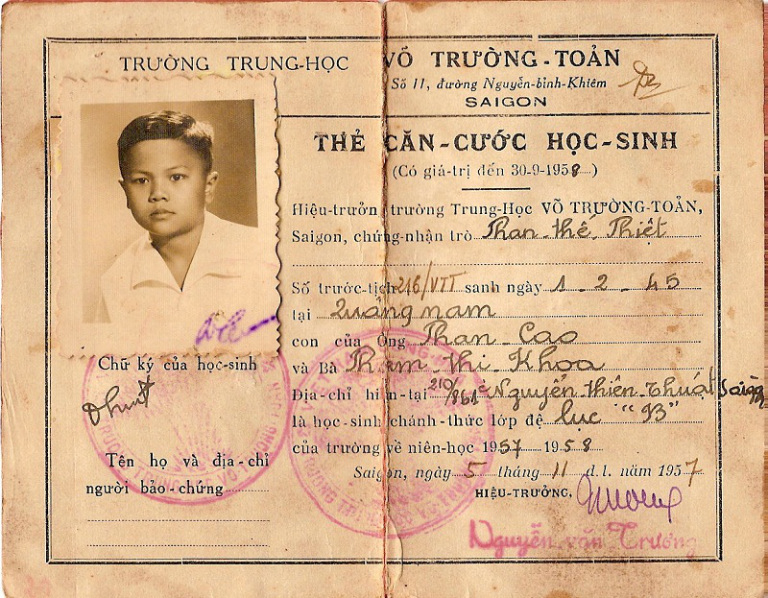 TRƯỜNG TRUNG-HỌC VÕ TRƯỜNG-TOẢN
Số 11, đường Nguyễn-bỉnh-Khiêm
SAIGON
THẺ CĂN-CƯỚC HỌC-SINH
(Có giá-trị đến 30-9-1958)
Hiệu-trưởn trường Trung-Học VÕ TRƯỜNG-TOẢN,
Saigon, chứng-nhận trò Phan-thế-Thiệt
Số trước-tịch 216/VTT sanh ngày 1 - 2 - 45
tại Quảng nam
con của Ông Phan-Cao
và Bà Phạm-thị-Khoa
Địa-chỉ hiện-tại 210/861c Nguyễn-thiện-Thuật Saigon
là học-sinh chánh-thức lớp đệ lục "B"
của trường về niên-học 1957 1958
Saigon, ngày 5 tháng 11 d.l. năm 1957
HIỆU-TRƯỞNG,
Nguyễn văn Trương
Chữ ký của học-sinh
Tên họ và địa-chỉ
người bảo-chứng